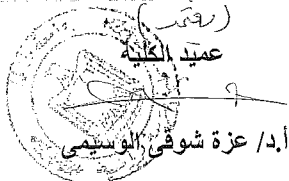 (يعتمد)
عميد الكلية
أ.د/ عزة شوقى الوسيمى